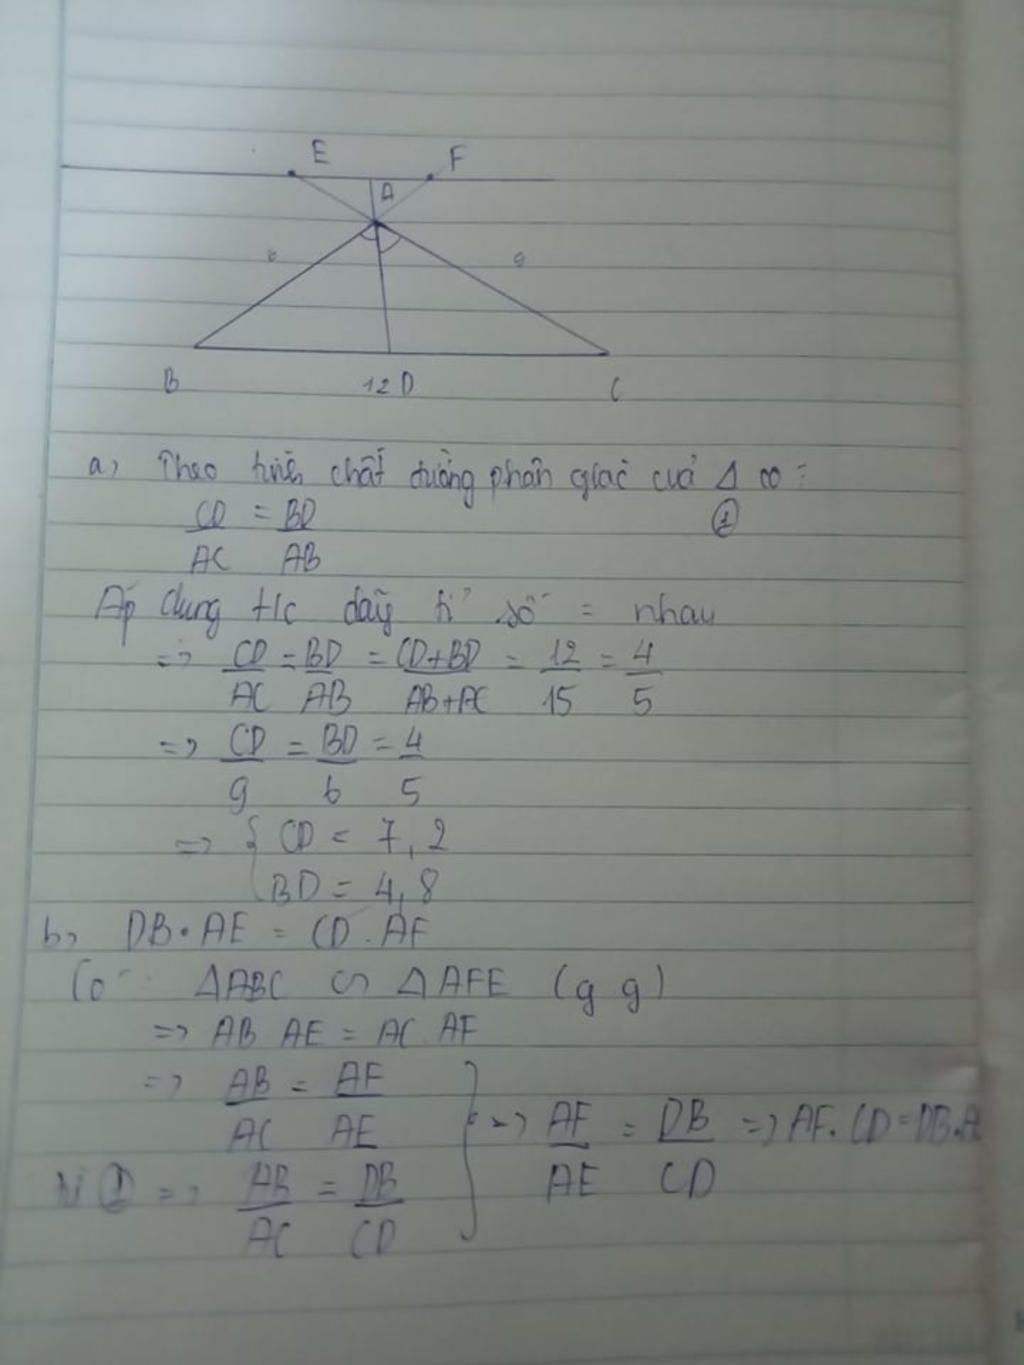 E F
A
6 9
B 12 D C
a, Theo tính chất đường phân giác của Δ có:
CD/AC = BD/AB ①
Áp dụng t/c dãy tỉ số = nhau
=> CD/AC = BD/AB = CD+BD/AB+AC = 12/15 = 4/5
=> CD/9 = BD/6 = 4/5
=> { CD = 7,2
BD = 4,8
b, DB.AE = CD.AF
Có ΔABC ∽ ΔAFE (g g)
=> AB AE = AC.AF
=> AB/AC = AF/AE
Từ ① => AB/AC = DB/CD } => AF/AE = DB/CD => AF.CD=DB.A